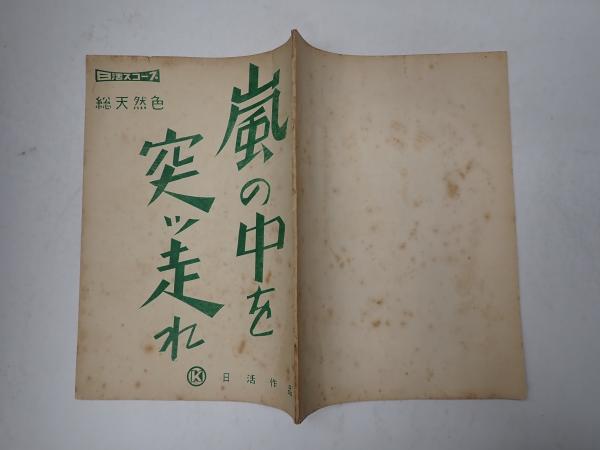 日活スコープ
総天然色
嵐の中を
突ッ走れ
K 日活作品